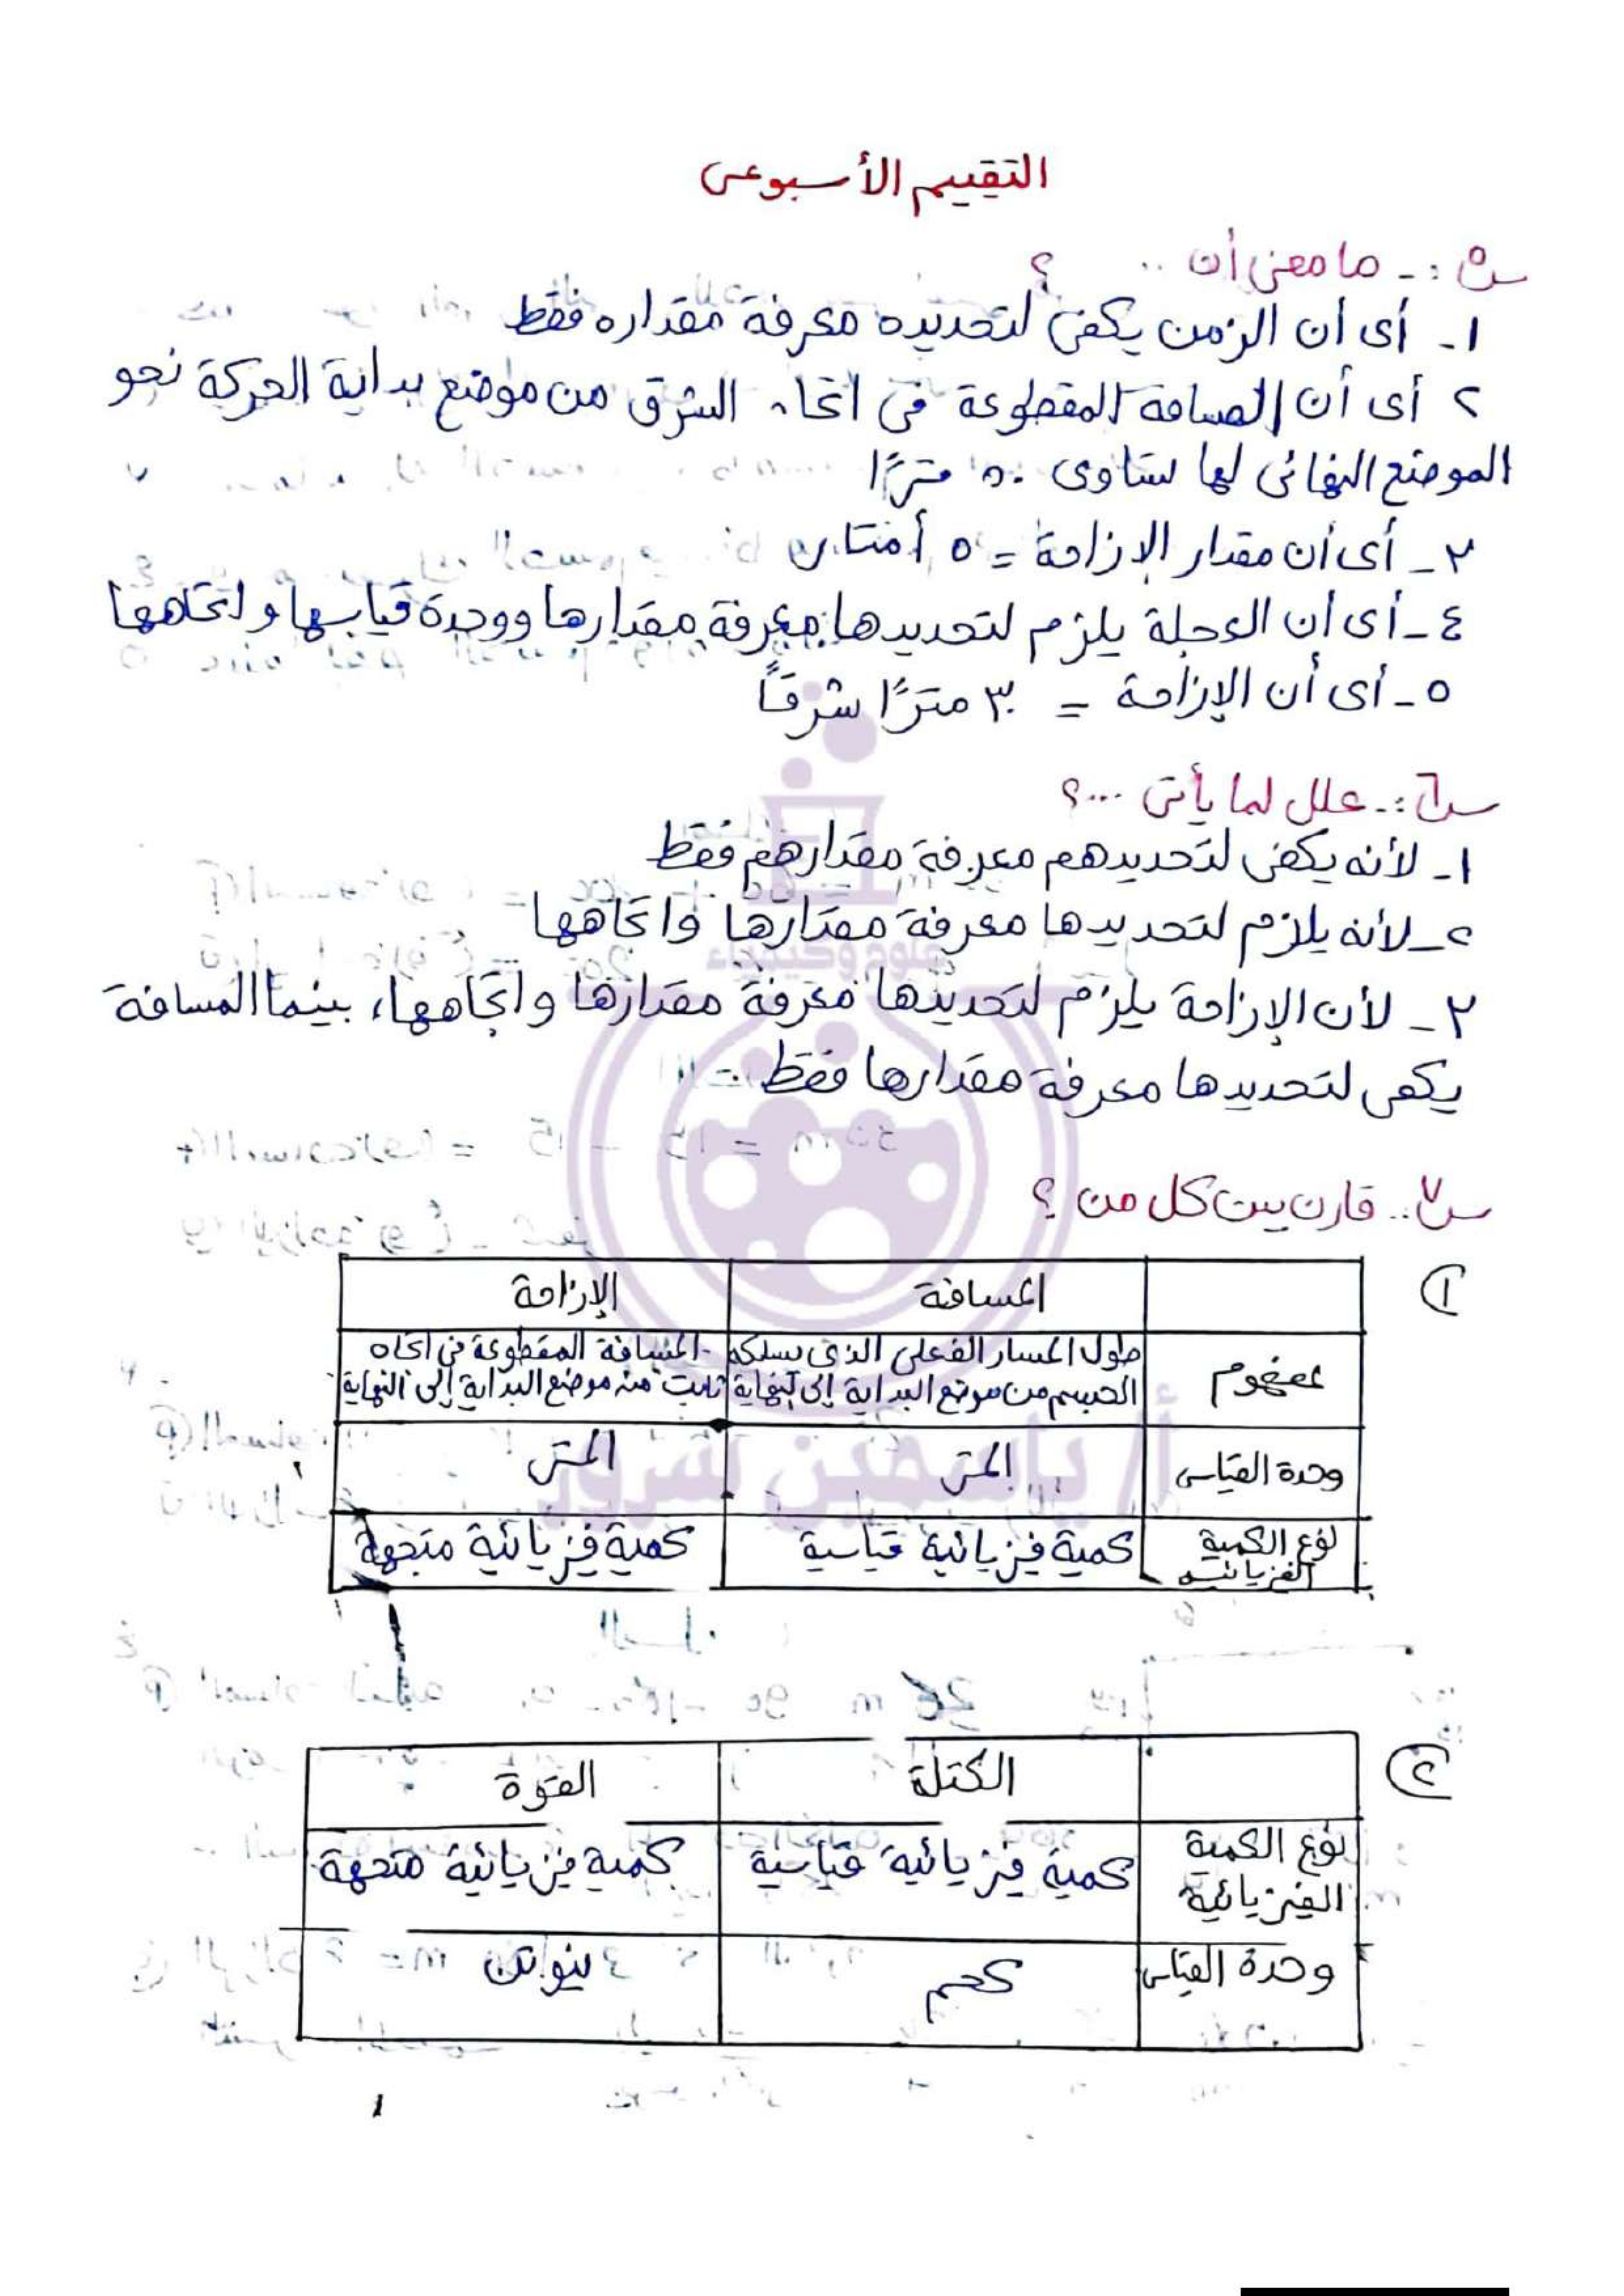 التقييم الأسبوعى
س٥ :- ما معنى أن .. ؟
١- أى أن الزمن يكفى لتحديده معرفة مقداره فقط
٢ أى أن المسافة المقطوعة فى اتجاه الشرق من موضع بداية الحركة نحو
الموضع النهائى لها تساوى ٥٠ مترًا
٣- أى أن مقدار الإزاحة = ٥ أمتار
٤- أى أن العجلة يلزم لتحديدها معرفة مقدارها ووحدة قياسها واتجاهها
٥- أى أن الإزاحة = ٣٠ مترًا شرقًا
س٦ :- علل لما يأتى ...؟
١- لأنه يكفى لتحديدهم معرفة مقدارهم فقط
٢- لأنه يلزم لتحديدها معرفة مقدارها واتجاهها
٣- لأن الإزاحة يلزم لتحديدها معرفة مقدارها واتجاهها، بينما المسافة
يكفى لتحديدها معرفة مقدارها فقط
س٧.. قارن بين كل من ؟
١
المسافة الإزاحة
مفهوم طول المسار الفعلى الذى يسلكه المسافة المقطوعة فى اتجاه
الجسم من موضع البداية إلى النهاية ثابت من موضع البداية إلى النهاية
وحدة القياس المتر المتر
نوع الكمية كمية فيزيائية قياسية كمية فيزيائية متجهة
الفيزيائية
٢
الكتلة القوة
نوع الكمية كمية فيزيائية قياسية كمية فيزيائية متجهة
الفيزيائية
وحدة القياس كجم نيوتن
علوم وكيمياء
أ/ ياسمين سرور